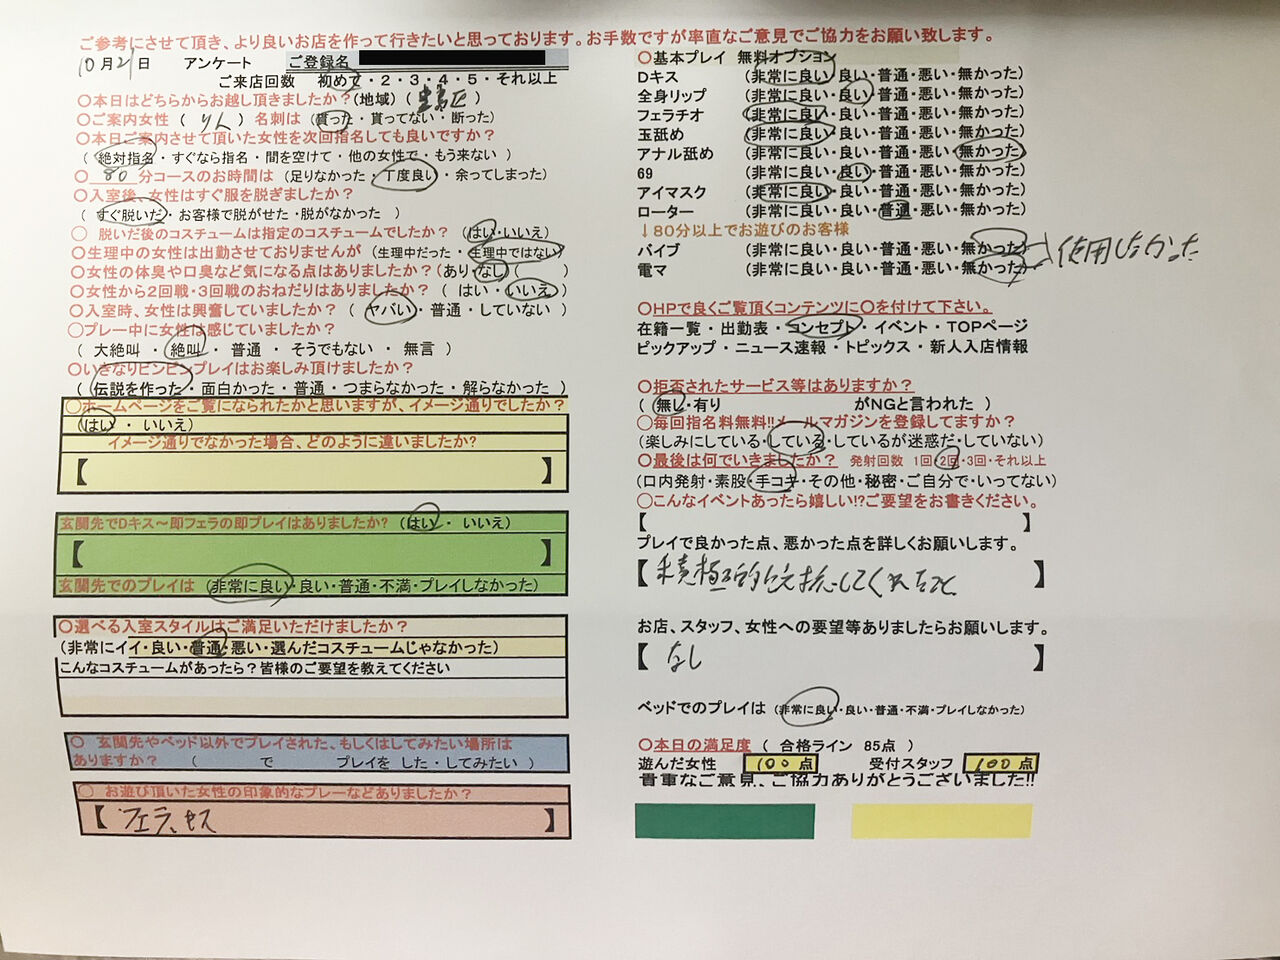 ご参考にさせて頂き、より良いお店を作って行きたいと思っております。お手数ですが率直なご意見でご協力をお願い致します。
10月21日 アンケート ご登録名
ご来店回数 初めて・2・3・4・5・それ以上
〇本日はどちらからお越し頂きましたか?(地域)( )
〇ご案内女性 ( りん ) 名刺は (貰った・貰ってない・断った)
〇本日ご案内させて頂いた女性を次回指名しても良いですか?
( 絶対指名・すぐなら指名・間を空けて・他の女性で・もう来ない )
〇 80 分コースのお時間は (足りなかった・丁度良い・余ってしまった)
〇入室後、女性はすぐ服を脱ぎましたか?
( すぐ脱いだ・お客様で脱がせた・脱がなかった )
〇 脱いだ後のコスチュームは指定のコスチュームでしたか? (はい・いいえ)
〇生理中の女性は出勤させておりませんが (生理中だった・生理中ではない)
〇女性の体臭や口臭など気になる点はありましたか?(あり・なし( )
〇女性から2回戦・3回戦のおねだりはありましたか? ( はい・いいえ )
〇入室時、女性は興奮していましたか? ( ヤバい・普通・していない )
〇プレー中に女性は感じていましたか?
( 大絶叫 ・ 絶叫 ・ 普通 ・ そうでもない ・ 無言 )
〇いきなりビンビンプレイはお楽しみ頂けましたか?
( 伝説を作った・面白かった・普通・つまらなかった・解らなかった )
〇ホームページをご覧になられたかと思いますが、イメージ通りでしたか?
(はい ・ いいえ)
イメージ通りでなかった場合、どのように違いましたか?
【 】
玄関先でDキス～即フェラの即プレイはありましたか? (はい ・ いいえ)
【 】
玄関先でのプレイは (非常に良い・良い・普通・不満・プレイしなかった)
〇選べる入室スタイルはご満足いただけましたか?
(非常にイイ・良い・普通・悪い・選んだコスチュームじゃなかった)
こんなコスチュームがあったら?皆様のご要望を教えてください
〇 玄関先やベッド以外でプレイされた、もしくはしてみたい場所は
ありますか? ( で プレイを した・してみたい )
〇 お遊び頂いた女性の印象的なプレーなどありましたか?
【 フェラ、 】
〇基本プレイ 無料オプション
Dキス (非常に良い・良い・普通・悪い・無かった)
全身リップ (非常に良い・良い・普通・悪い・無かった)
フェラチオ (非常に良い・良い・普通・悪い・無かった)
玉舐め (非常に良い・良い・普通・悪い・無かった)
アナル舐め (非常に良い・良い・普通・悪い・無かった)
69 (非常に良い・良い・普通・悪い・無かった)
アイマスク (非常に良い・良い・普通・悪い・無かった)
ローター (非常に良い・良い・普通・悪い・無かった)
↓80分以上でお遊びのお客様
バイブ (非常に良い・良い・普通・悪い・無かった)
電マ (非常に良い・良い・普通・悪い・無かった)
使用しなかった
〇HPで良くご覧頂くコンテンツに〇を付けて下さい。
在籍一覧・出勤表・コンセプト・イベント・TOPページ
ピックアップ・ニュース速報・トピックス・新人入店情報
〇拒否されたサービス等はありますか?
( 無し・有り がNGと言われた )
〇毎回指名料無料!!メールマガジンを登録してますか?
(楽しみにしている・している・しているが迷惑だ・していない)
〇最後は何でいきましたか? 発射回数 1回・2回・3回・それ以上
(口内発射・素股・手コキ・その他・秘密・ご自分で・いってない)
〇こんなイベントあったら嬉しい!?ご要望をお書きください。
【 】
プレイで良かった点、悪かった点を詳しくお願いします。
【 積極的に してくれたこと 】
お店、スタッフ、女性への要望等ありましたらお願いします。
【 なし 】
ベッドでのプレイは (非常に良い・良い・普通・不満・プレイしなかった)
〇本日の満足度 ( 合格ライン 85点 )
遊んだ女性 100 点 受付スタッフ 100 点
貴重なご意見、ご協力ありがとうございました!!